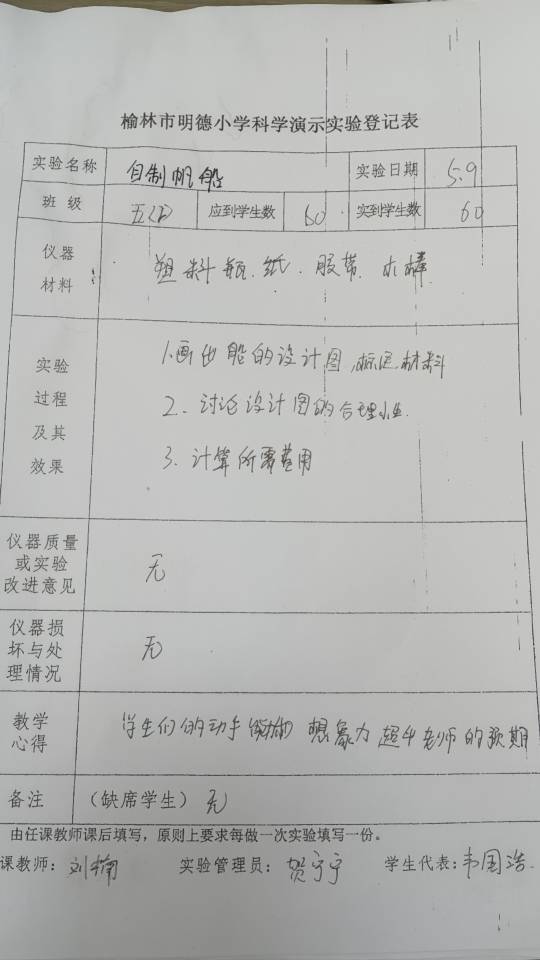 榆林市明德小学科学演示实验登记表
实验名称 自制帆船 实验日期 5.9
班 级 五 应到学生数 60 实到学生数 60
仪器
材料
塑料瓶、纸、胶带、木棒
实验
过程
及其
效果
1.画出船的设计图,标注材料
2、讨论设计图的合理性
3、计算所需费用
仪器质量
或实验
改进意见
无
仪器损
坏与处
理情况
无
教学
心得
学生们的动手 想象力超乎老师的预期
备注 (缺席学生) 无
由任课教师课后填写,原则上要求每做一次实验填写一份。
课教师: 刘 实验管理员: 贺宁宁 学生代表: 韦国浩